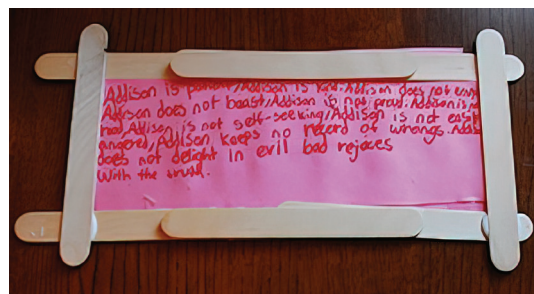 Addison is patient/Addison is kind. Addison does not envy
Addison does not boast/Addison is not proud. Addison is
Addison is not self-seeking/Addison is not easil
angered, Addison keeps no record of wrongs. Addis
does not delight in evil bad rejoces
With the truth.